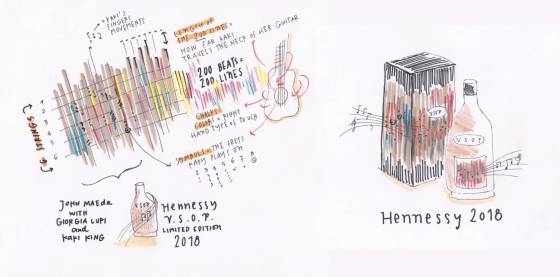 KAKI'S
FINGERS
MOVEMENTS
LENGTH OF
THE 200 LINES =
HOW FAR KAKI
TRAVELS THE NECK OF HER GUITAR
200 BEATS =
200 LINES
COLOR = RIGHT
HAND TYPE OF TOUCH
SYMBOLS = THE FRETS
KAKY PLAYS ON
1 2 3 4 5 6 7 8
1
2
3
4
5
6
STRINGS
JOHN MAEDA
WITH
GIORGIA LUPI
and
KAKI KING
VSOP
Hennessy
V.S.O.P.
LIMITED EDITION
2018
VSOP
V.S.O.P
Hennessy 2018